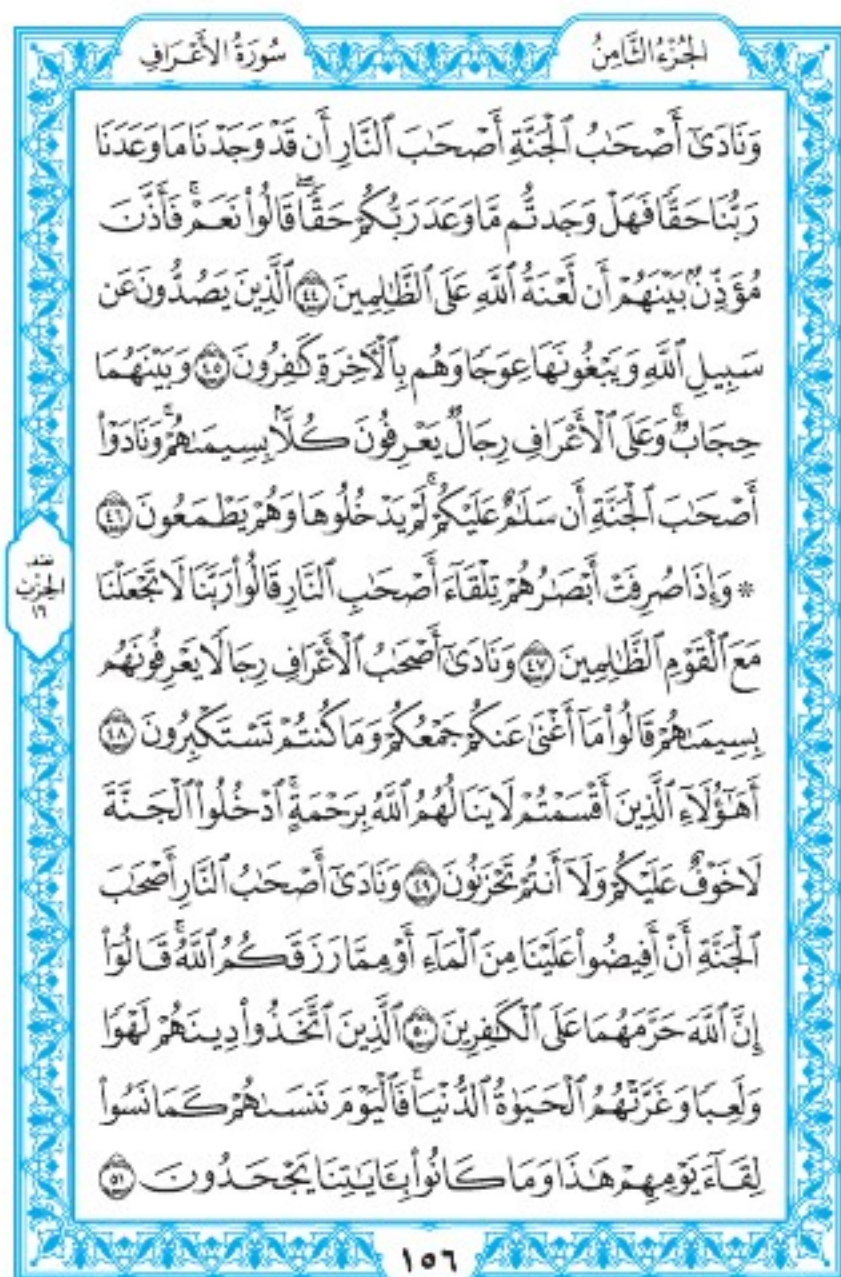 الجُزْءُ الثَّامِنُ
سُورَةُ الأَعْرَافِ
وَنَادَىٰٓ أَصْحَـٰبُ ٱلْجَنَّةِ أَصْحَـٰبَ ٱلنَّارِ أَن قَدْ وَجَدْنَا مَا وَعَدَنَا
رَبُّنَا حَقًّا فَهَلْ وَجَدتُّم مَّا وَعَدَ رَبُّكُمْ حَقًّاۖ قَالُوا۟ نَعَمْۚ فَأَذَّنَ
مُؤَذِّنٌۢ بَيْنَهُمْ أَن لَّعْنَةُ ٱللَّهِ عَلَى ٱلظَّـٰلِمِينَ ٤٤ ٱلَّذِينَ يَصُدُّونَ عَن
سَبِيلِ ٱللَّهِ وَيَبْغُونَهَا عِوَجًا وَهُم بِٱلْـَٔاخِرَةِ كَـٰفِرُونَ ٤٥ وَبَيْنَهُمَا
حِجَابٌۚ وَعَلَى ٱلْأَعْرَافِ رِجَالٌ يَعْرِفُونَ كُلًّۢا بِسِيمَىٰهُمْۚ وَنَادَوْا۟
أَصْحَـٰبَ ٱلْجَنَّةِ أَن سَلَـٰمٌ عَلَيْكُمْۚ لَمْ يَدْخُلُوهَا وَهُمْ يَطْمَعُونَ ٤٦
۞ وَإِذَا صُرِفَتْ أَبْصَـٰرُهُمْ تِلْقَآءَ أَصْحَـٰبِ ٱلنَّارِ قَالُوا۟ رَبَّنَا لَا تَجْعَلْنَا
مَعَ ٱلْقَوْمِ ٱلظَّـٰلِمِينَ ٤٧ وَنَادَىٰٓ أَصْحَـٰبُ ٱلْأَعْرَافِ رِجَالًا يَعْرِفُونَهُم
بِسِيمَىٰهُمْ قَالُوا۟ مَآ أَغْنَىٰ عَنكُمْ جَمْعُكُمْ وَمَا كُنتُمْ تَسْتَكْبِرُونَ ٤٨
أَهَـٰٓؤُلَآءِ ٱلَّذِينَ أَقْسَمْتُمْ لَا يَنَالُهُمُ ٱللَّهُ بِرَحْمَةٍۚ ٱدْخُلُوا۟ ٱلْجَنَّةَ
لَا خَوْفٌ عَلَيْكُمْ وَلَآ أَنتُمْ تَحْزَنُونَ ٤٩ وَنَادَىٰٓ أَصْحَـٰبُ ٱلنَّارِ أَصْحَـٰبَ
ٱلْجَنَّةِ أَنْ أَفِيضُوا۟ عَلَيْنَا مِنَ ٱلْمَآءِ أَوْ مِمَّا رَزَقَكُمُ ٱللَّهُۚ قَالُوٓا۟
إِنَّ ٱللَّهَ حَرَّمَهُمَا عَلَى ٱلْكَـٰفِرِينَ ٥٠ ٱلَّذِينَ ٱتَّخَذُوا۟ دِينَهُمْ لَهْوًا
وَلَعِبًا وَغَرَّتْهُمُ ٱلْحَيَوٰةُ ٱلدُّنْيَاۚ فَٱلْيَوْمَ نَنسَىٰهُمْ كَمَا نَسُوا۟
لِقَآءَ يَوْمِهِمْ هَـٰذَا وَمَا كَانُوا۟ بِـَٔايَـٰتِنَا يَجْحَدُونَ ٥١
نصف
الحزب
١٦
١٥٦